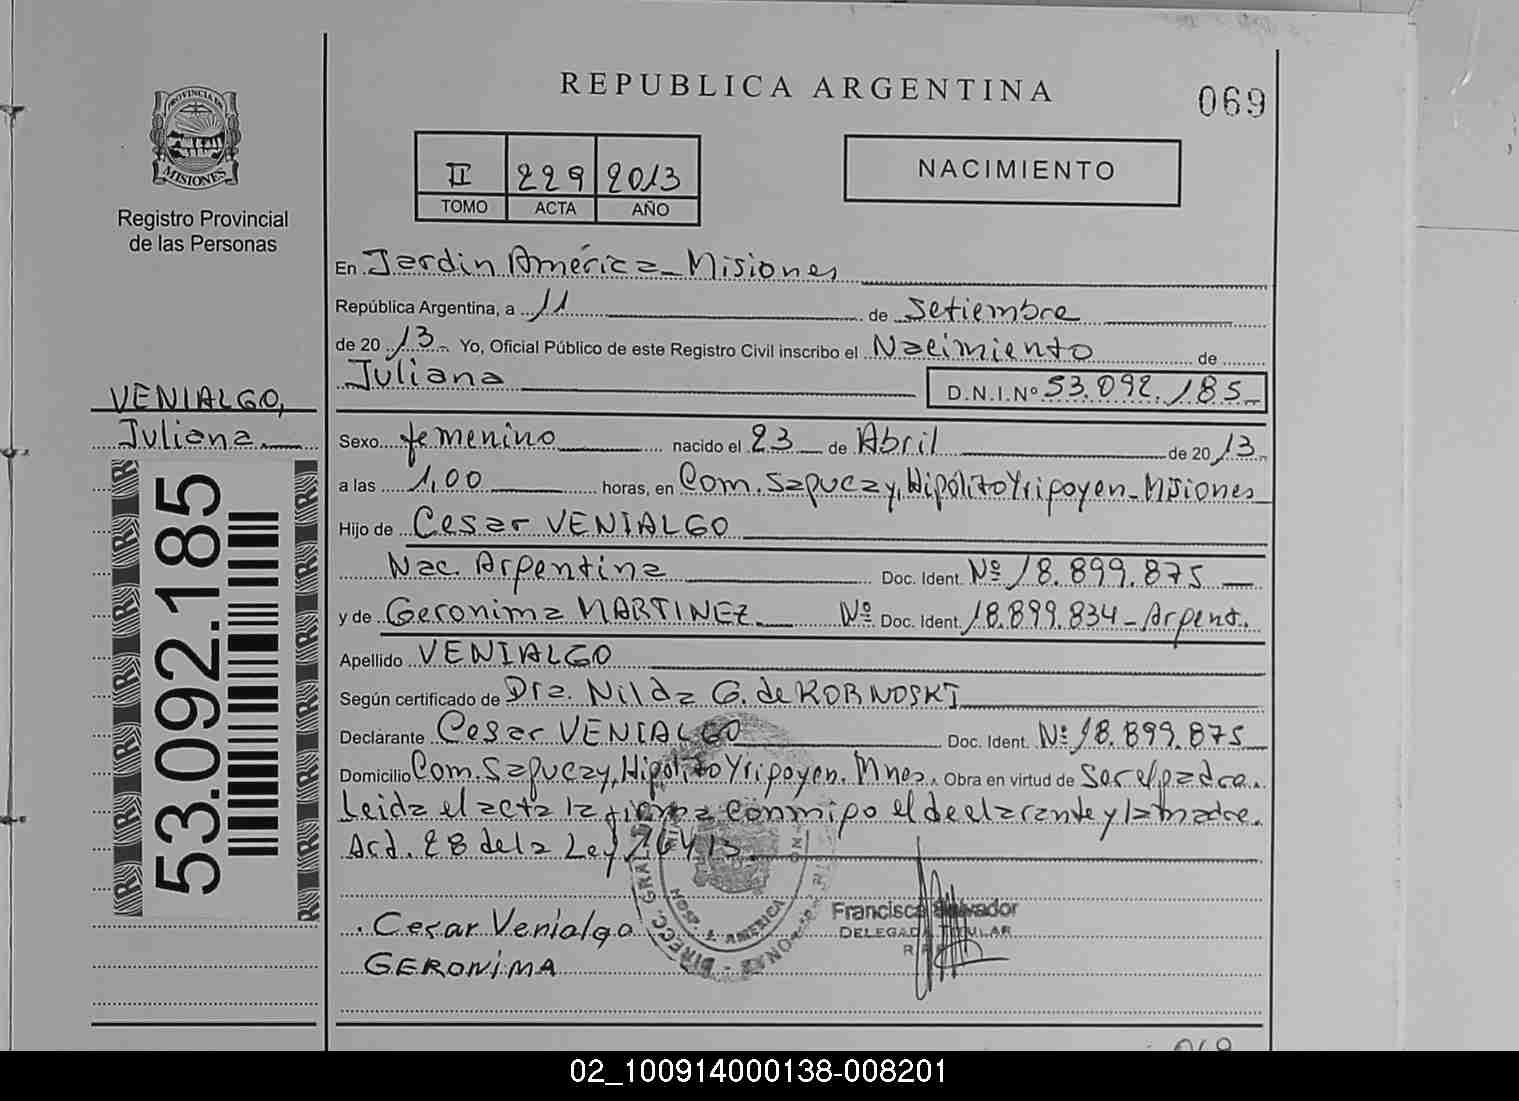 PROVINCIA DE
MISIONES
Registro Provincial
de las Personas
VENIALGO,
Juliana
53.092.185
REPUBLICA ARGENTINA
069
II 229 2013
TOMO ACTA AÑO
NACIMIENTO
En Jardin América - Misiones
República Argentina, a 11 de Setiembre
de 20 13 - Yo, Oficial Público de este Registro Civil inscribo el Nacimiento de
Juliana D.N.I.Nº 53.092.185 -
Sexo femenino nacido el 23 de Abril de 20 13
a las 1,00 horas, en Com. Sapucay, Hipólito Yrigoyen - Misiones
Hijo de Cesar VENIALGO
Nac. Argentina Doc. Ident. Nº 18.899.875
y de Geronima MARTINEZ Nº Doc. Ident. 18.899.834 - Argent.
Apellido VENIALGO
Según certificado de Dra. Nilda G. de KORNOSKI
Declarante Cesar VENIALGO Doc. Ident. Nº 18.899.875
Domicilio Com. Sapucay, Hipólito Yrigoyen. Mnes. Obra en virtud de Ser el padre.
Leida el acta la firma conmigo el declarante y la madre.
Art. 28 de la Ley 26413
Cesar Venialgo
GERONIMA
HOSP. J. AMERICA
DIRECC. GRAL.
Francisca Salvador
DELEGADA TITULAR
02_100914000138-008201